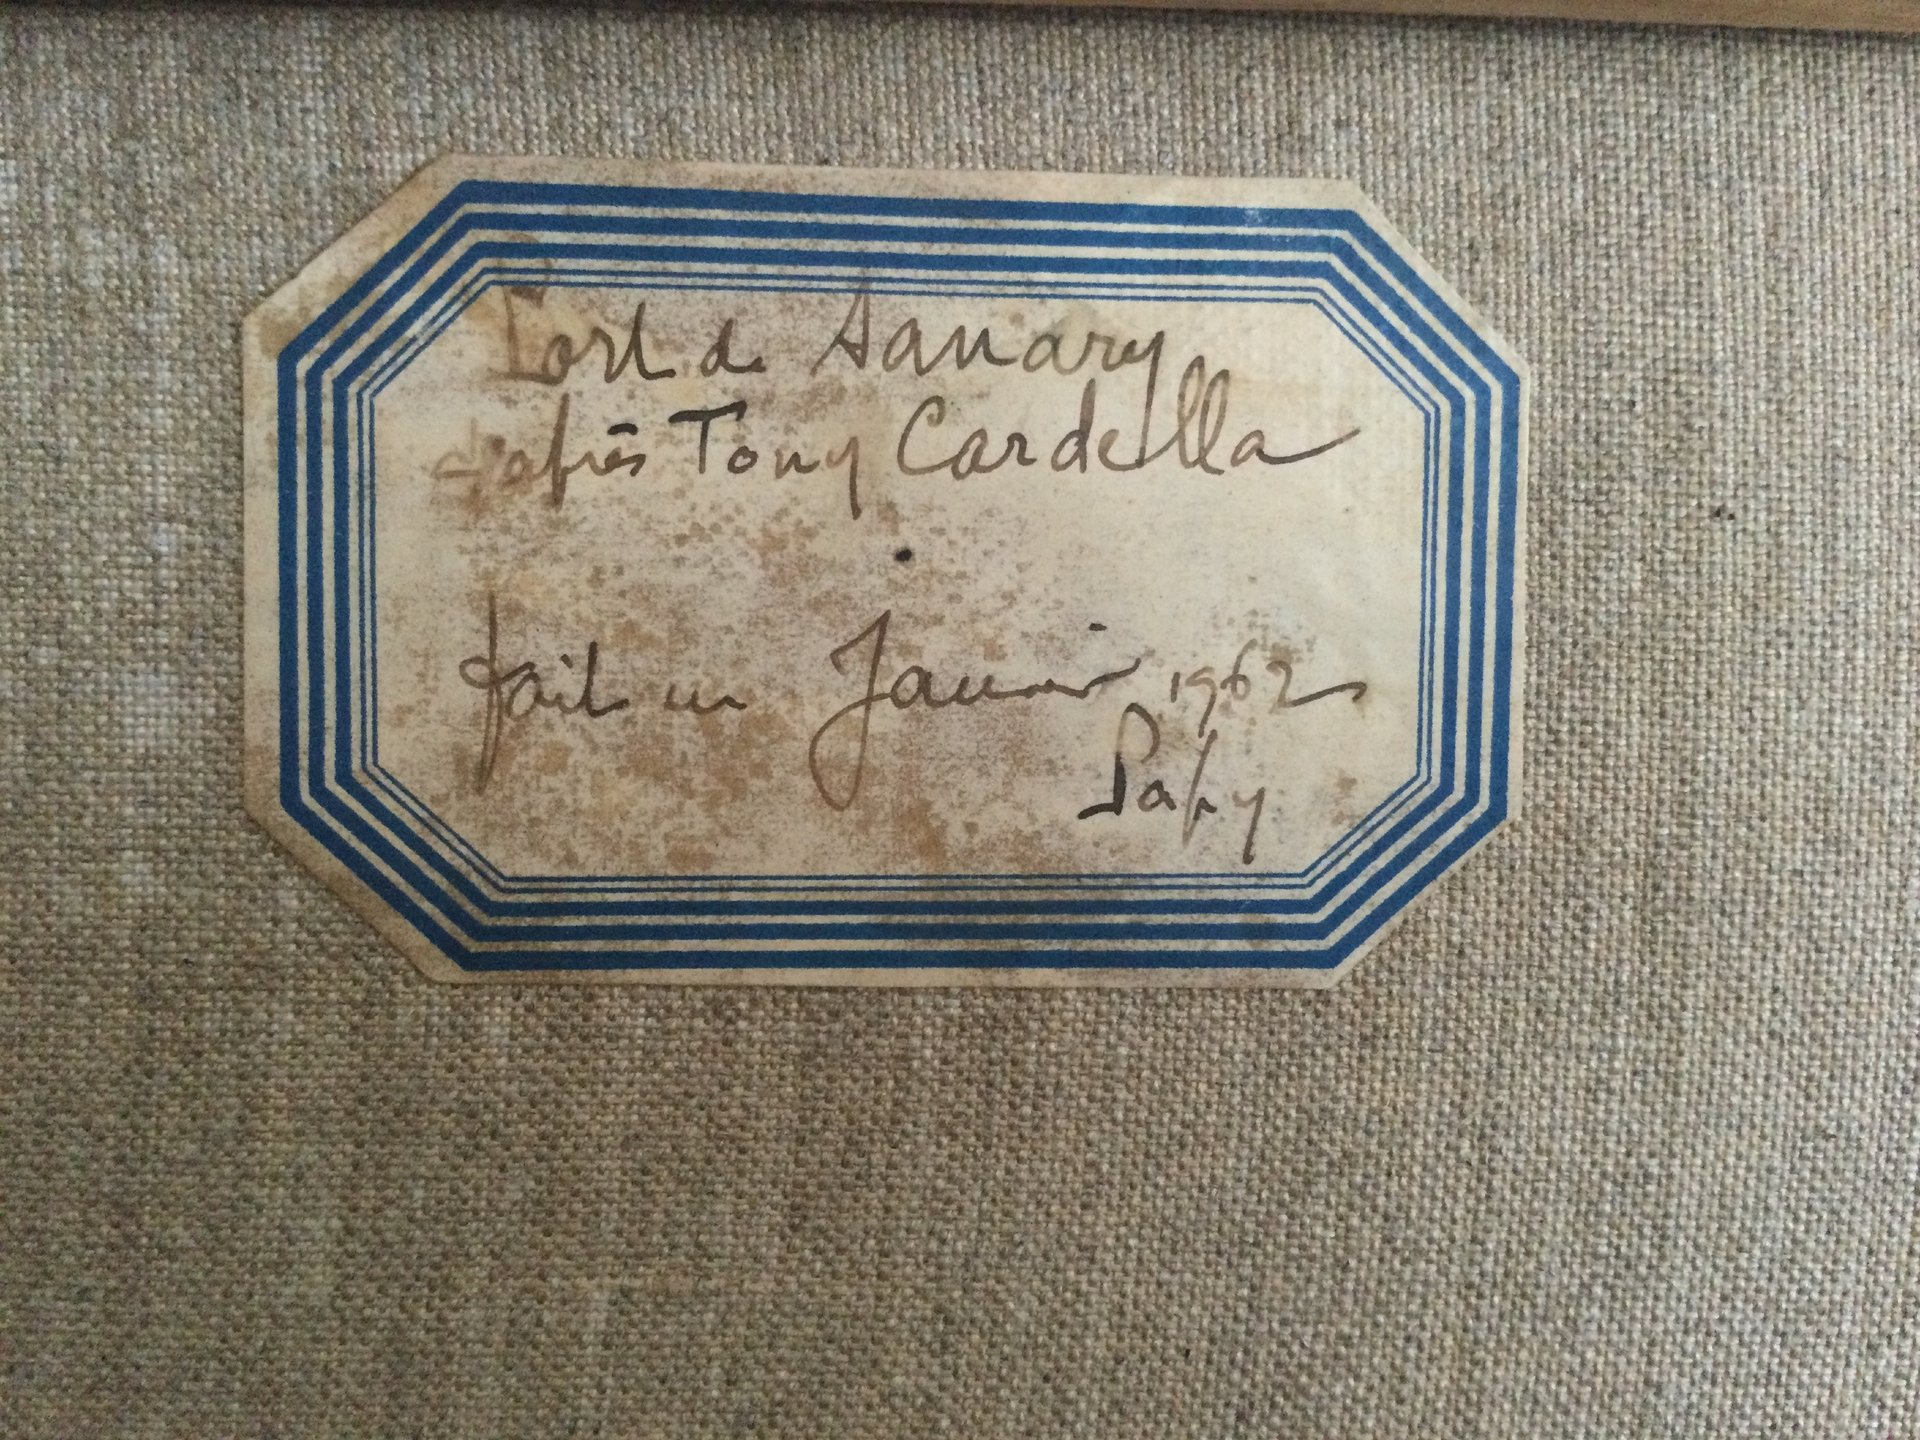 Port de Sanary
d'après Tony Cardella
fait en Janvier 1962
Papy